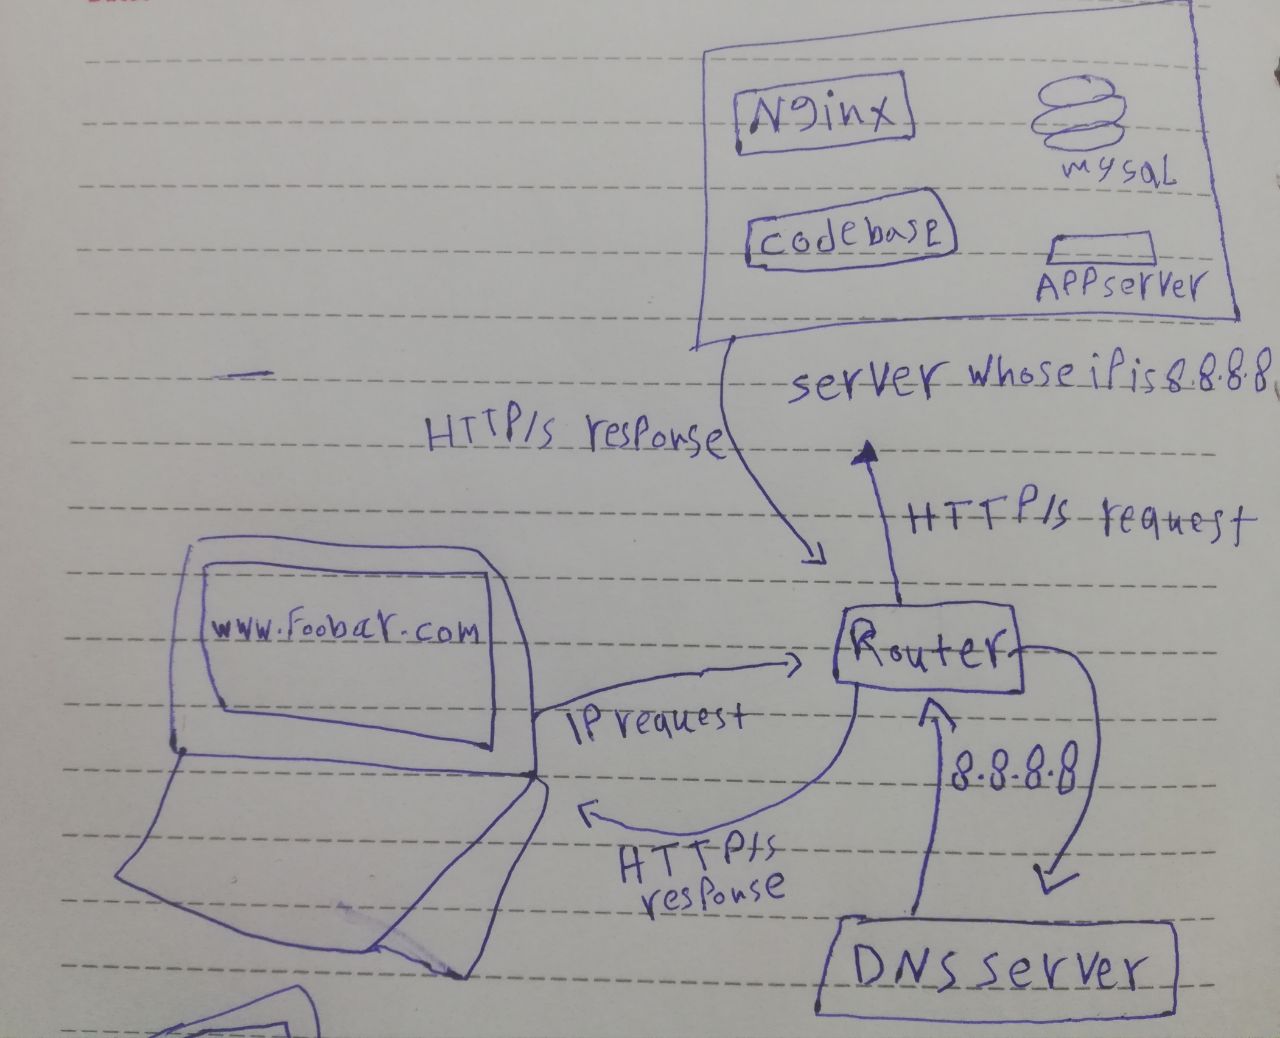 Nginx
mysqL
codebase
APPserver
server whose iP is 8.8.8.8
HTTP/s response
HTTP/s request
www.foobar.com
Router
IP request
8.8.8.8
HTTP/s
response
DNS server